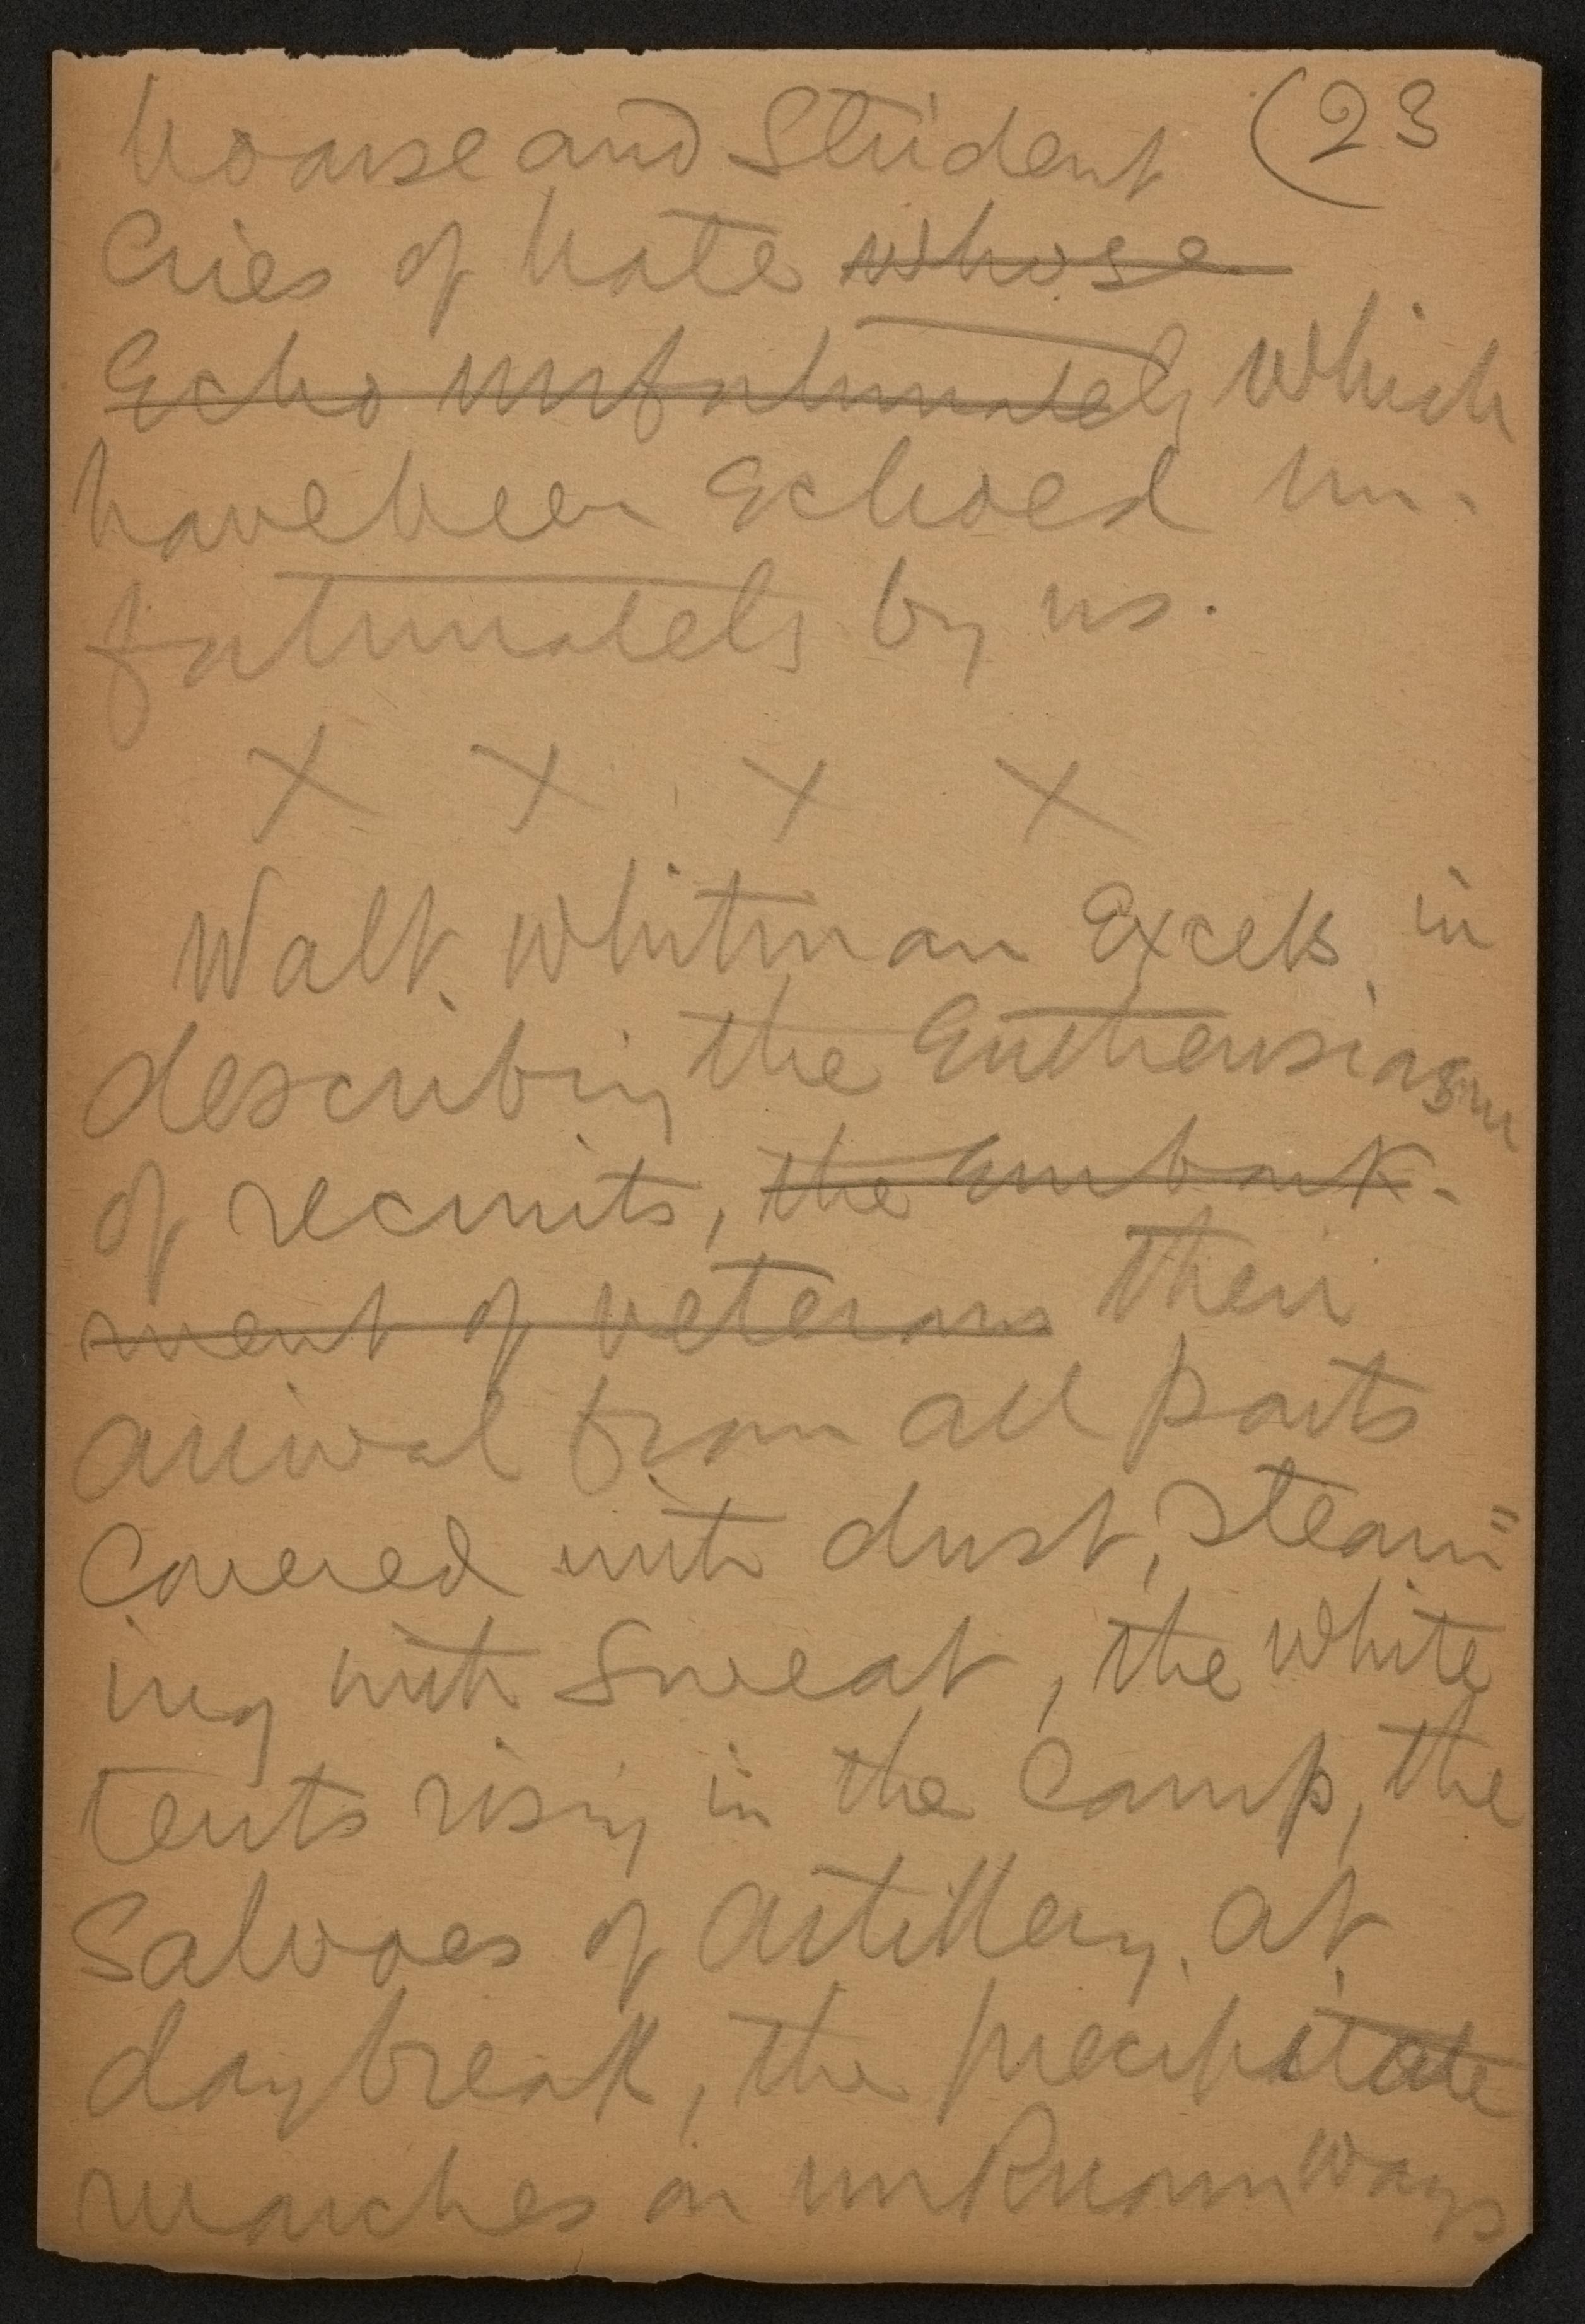 hoarse and Strident (23
Cries of hate whose
Echo unfortunately which
have been Echoed un-
fortunately by us.
X X X X
Walt Whitman Excels in
describing the Enthousiasm
of recruits, the Embark-
ment of veterans their
arrival from all parts
Covered with dust, steam=
ing with Sweat, the white
tents rising in the Camp, the
Salvoes of artillery at
daybreak, the precipitate
marches on unknown ways